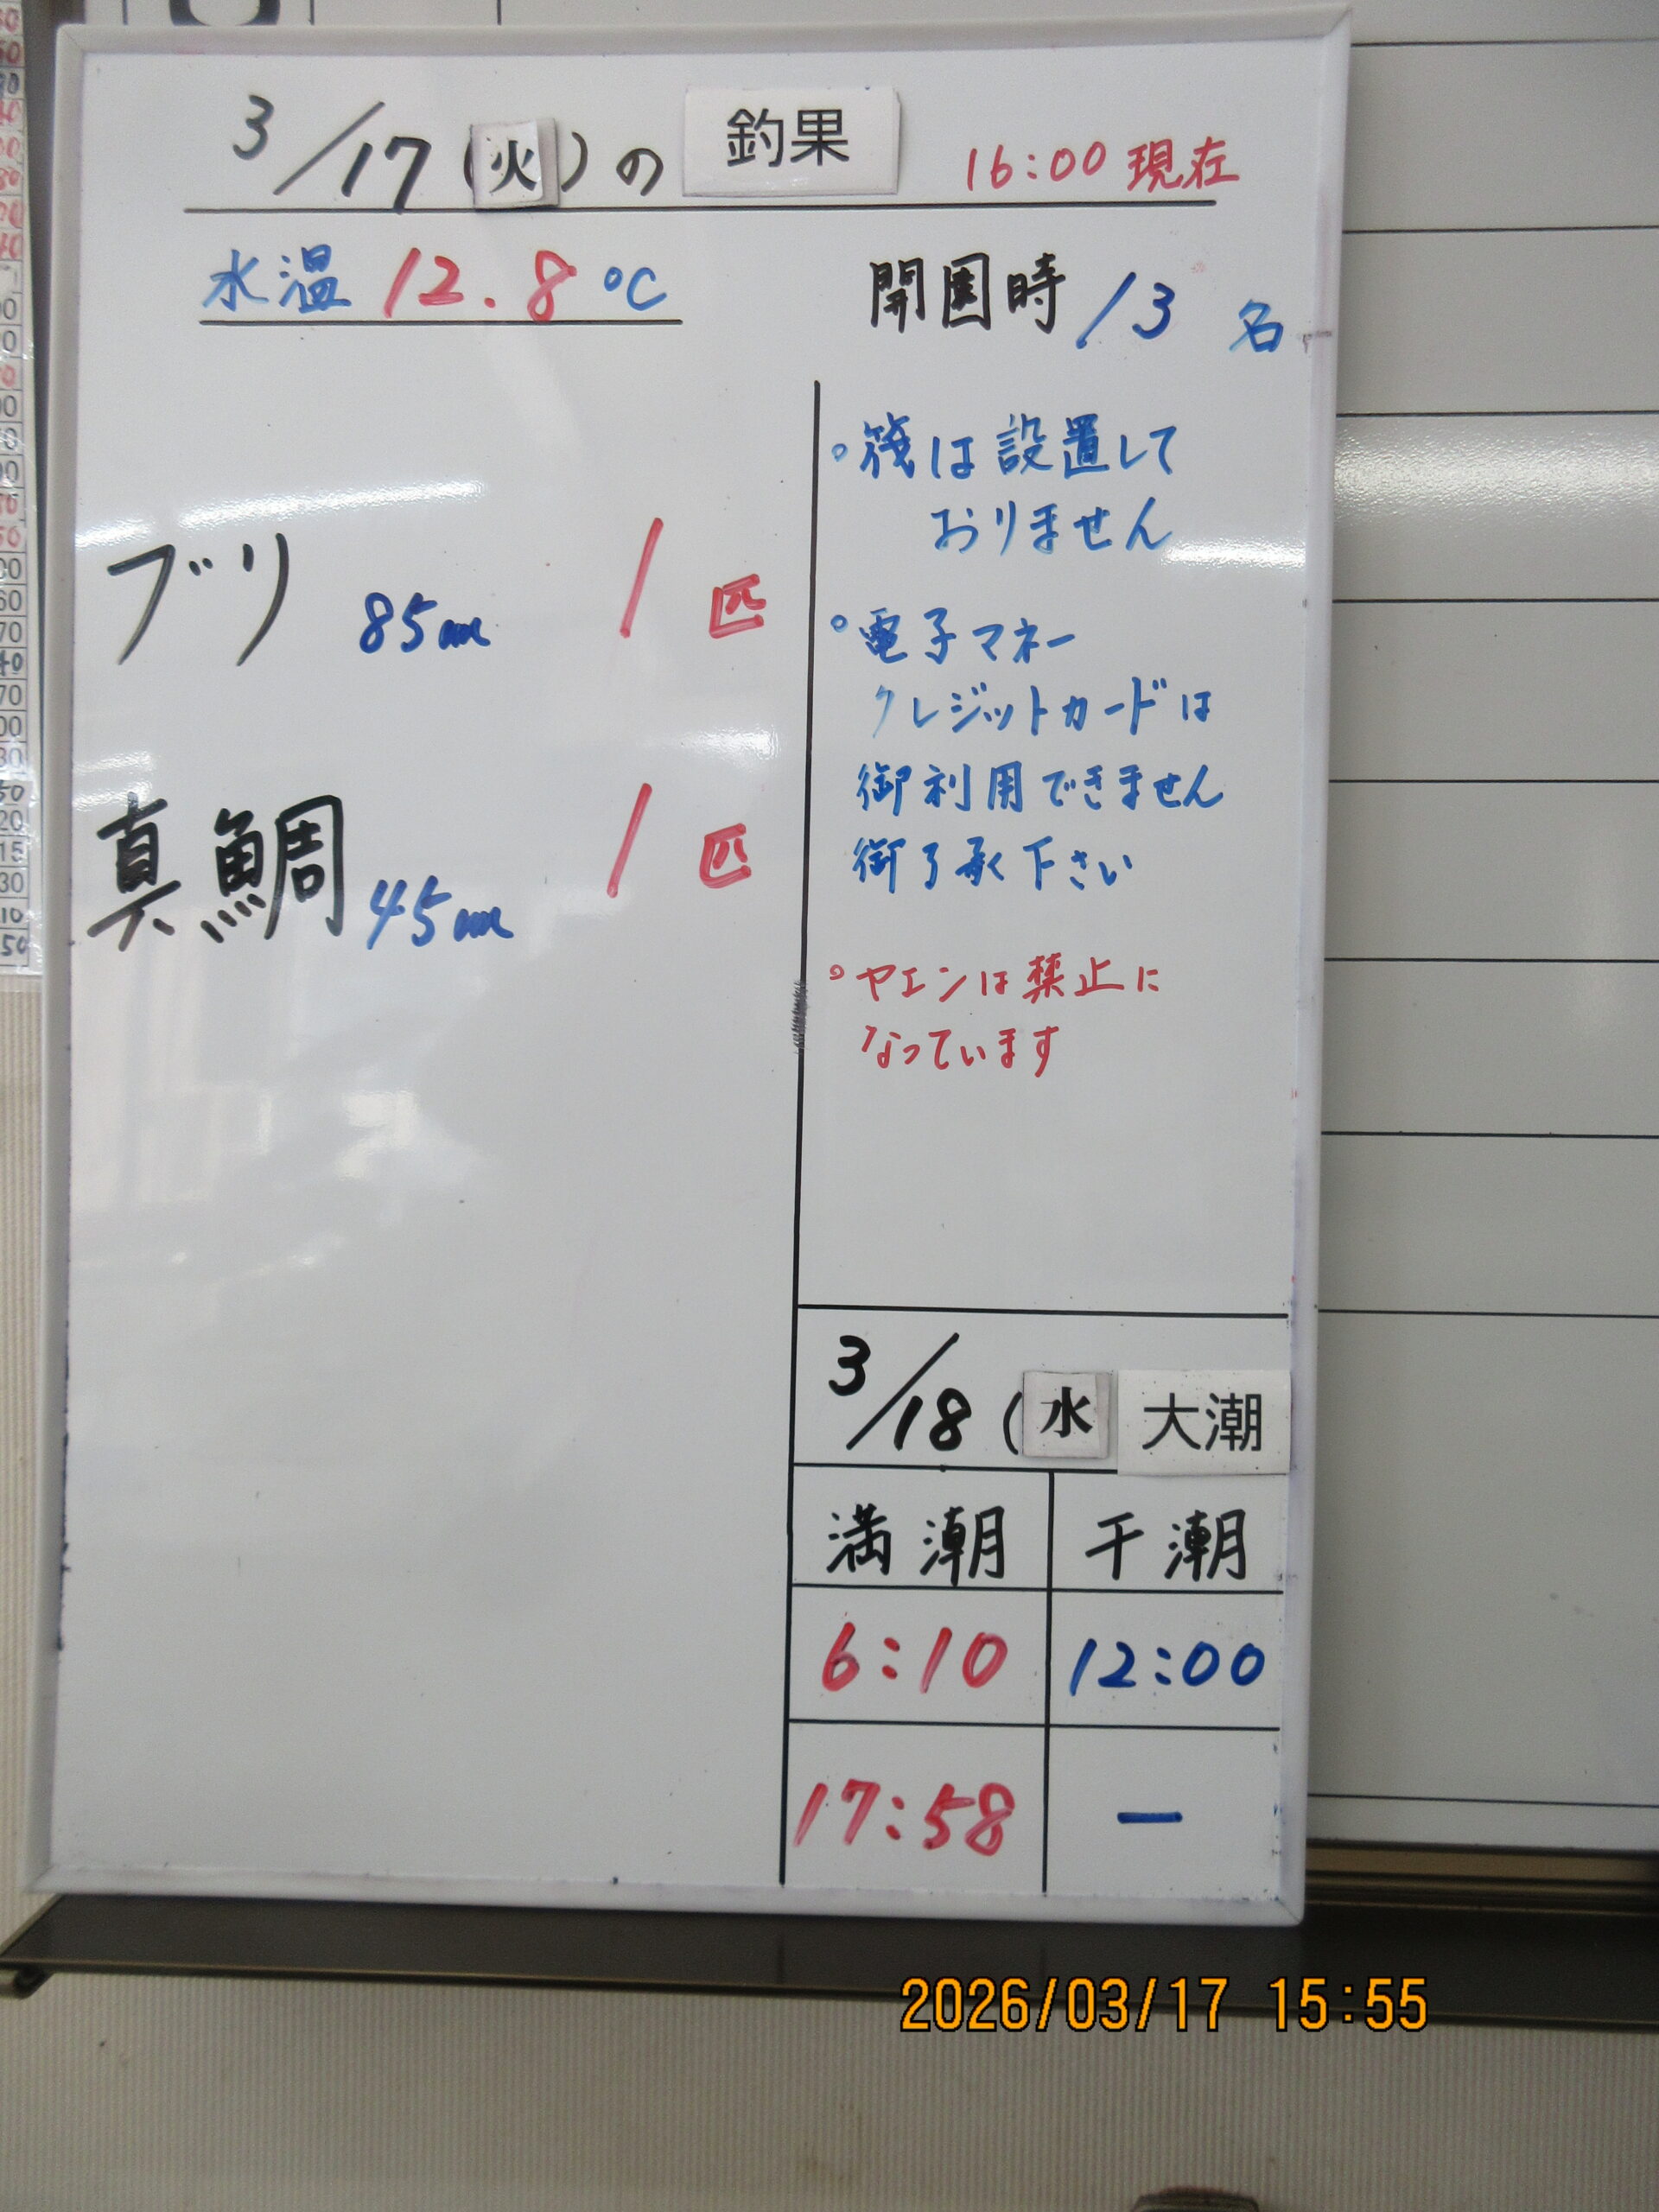 3/17(火)の 釣果 16:00 現在
水温 12.8℃
開園時 13 名
ブリ 85cm 1 匹
真鯛 45cm 1 匹
。筏は設置して
おりません
。電子マネー
クレジットカードは
御利用できません
御了承下さい
。ヤエンは禁止に
なっています
3/18(水 大潮
満潮 干潮
6:10 12:00
17:58 ー
2026/03/17 15:55